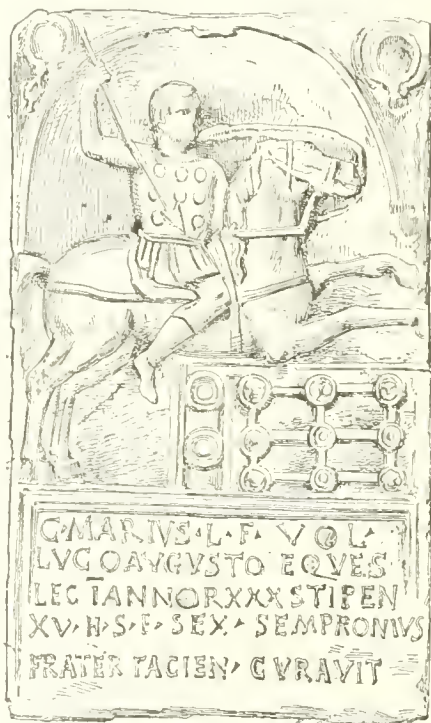 C·MARIVS·L·F·VOL·
LVCOAVGVSTO EQVES
LEG ĪANNORXXXSTIPEN
XV·H·S·E·SEX·SEMPRONIVS
FRATER FACIEN·CVRAVIT